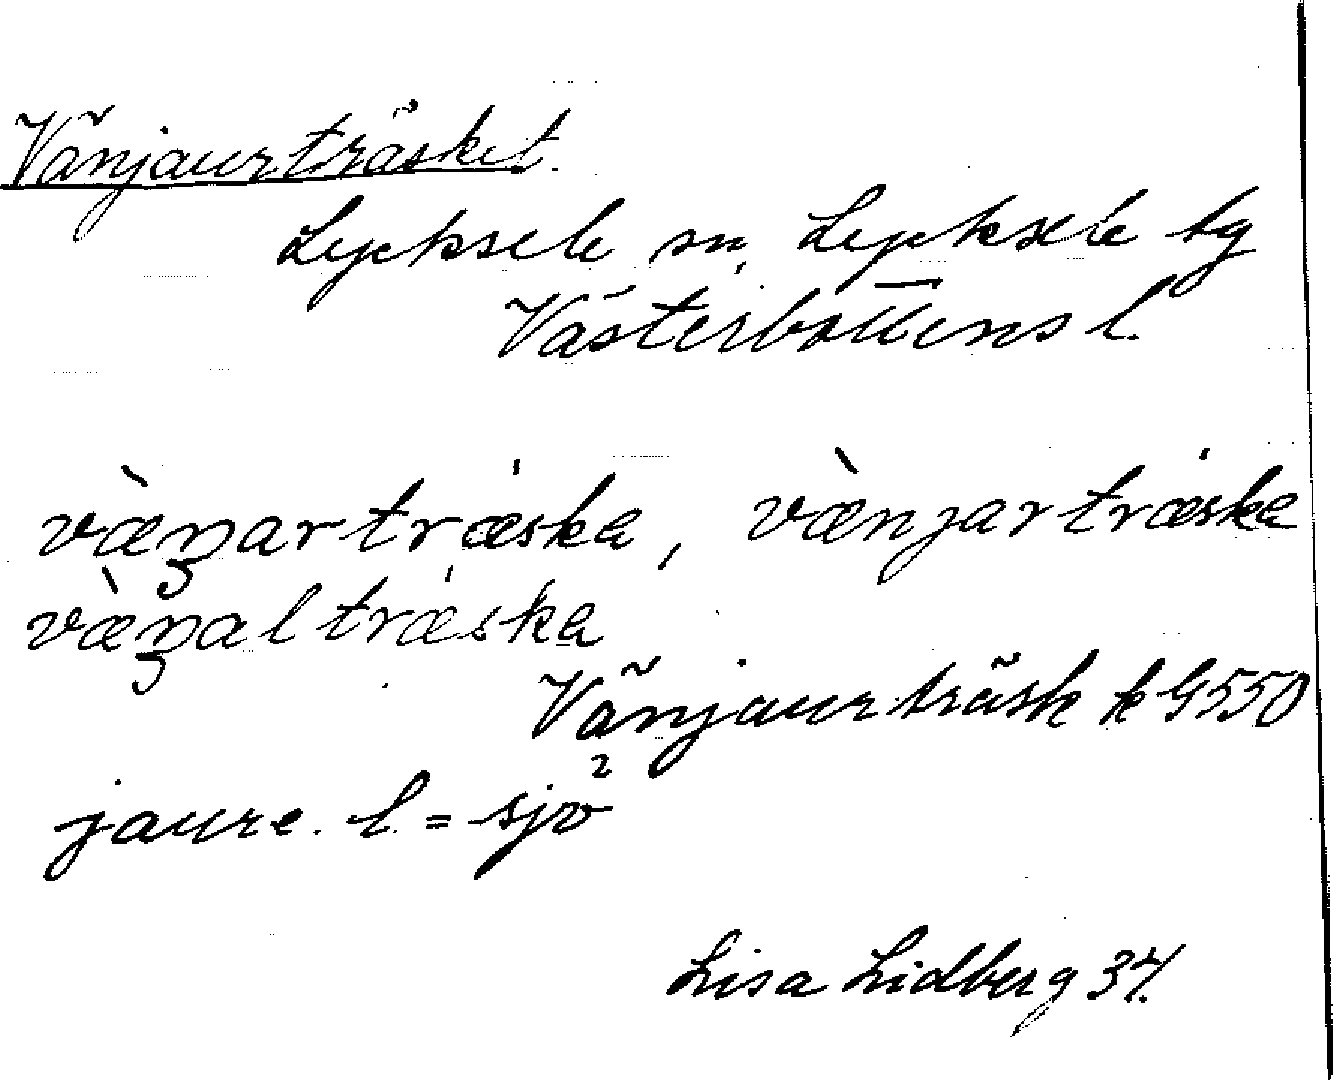 Vänjaurträsket.
Lycksele sn, Lycksele tg
Västerbottens l.
væ̀ŋartræska, væ̀njartræska
væ̀ŋaltræska
Vänjaurträsk k G550
jaure. l. = sjö
Lisa Lidberg 34.